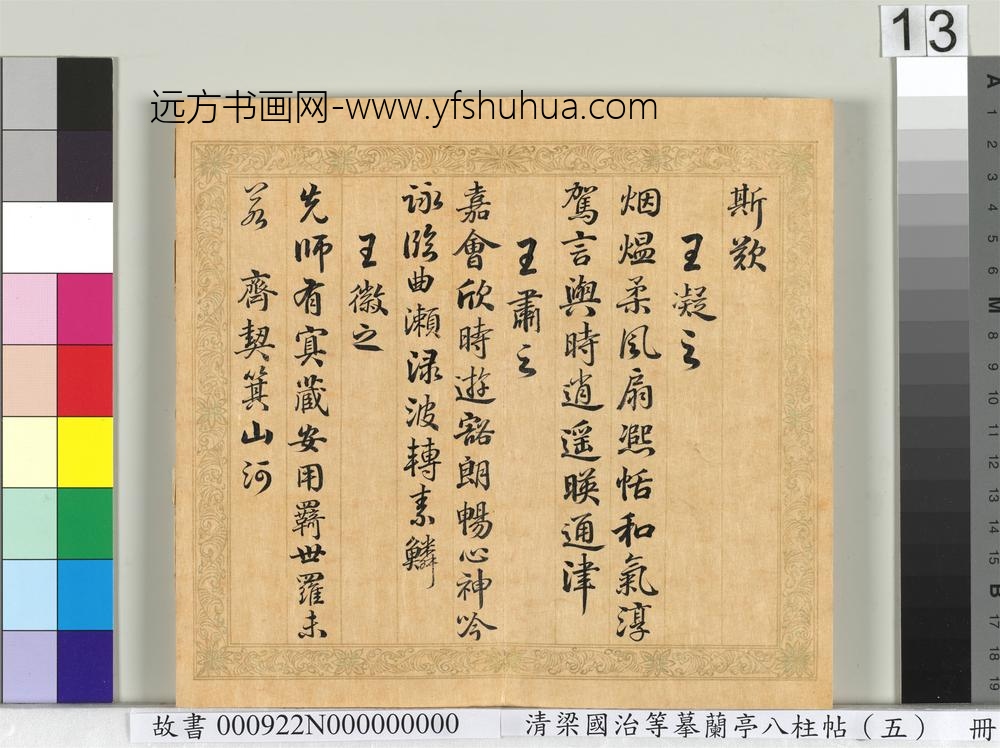 13
远方书画网-www.yfshuhua.com
斯歎
王凝之
烟煴柔风扇熈恬和氣淳
駕言興時遊逍遥暎通津
王肅之
嘉會欣時遊豁朗暢心神吟
詠臨曲瀬渌波轉素鱗
王徽之
先師有冥藏安用羇世羅未
若 齊契箕山河
故書 000922N000000000 清梁國治等摹蘭亭八柱帖（五） 冊
A 1 2 3 4 5 6 M 8 9 10 11 12 13 14 15 B 17 18 19